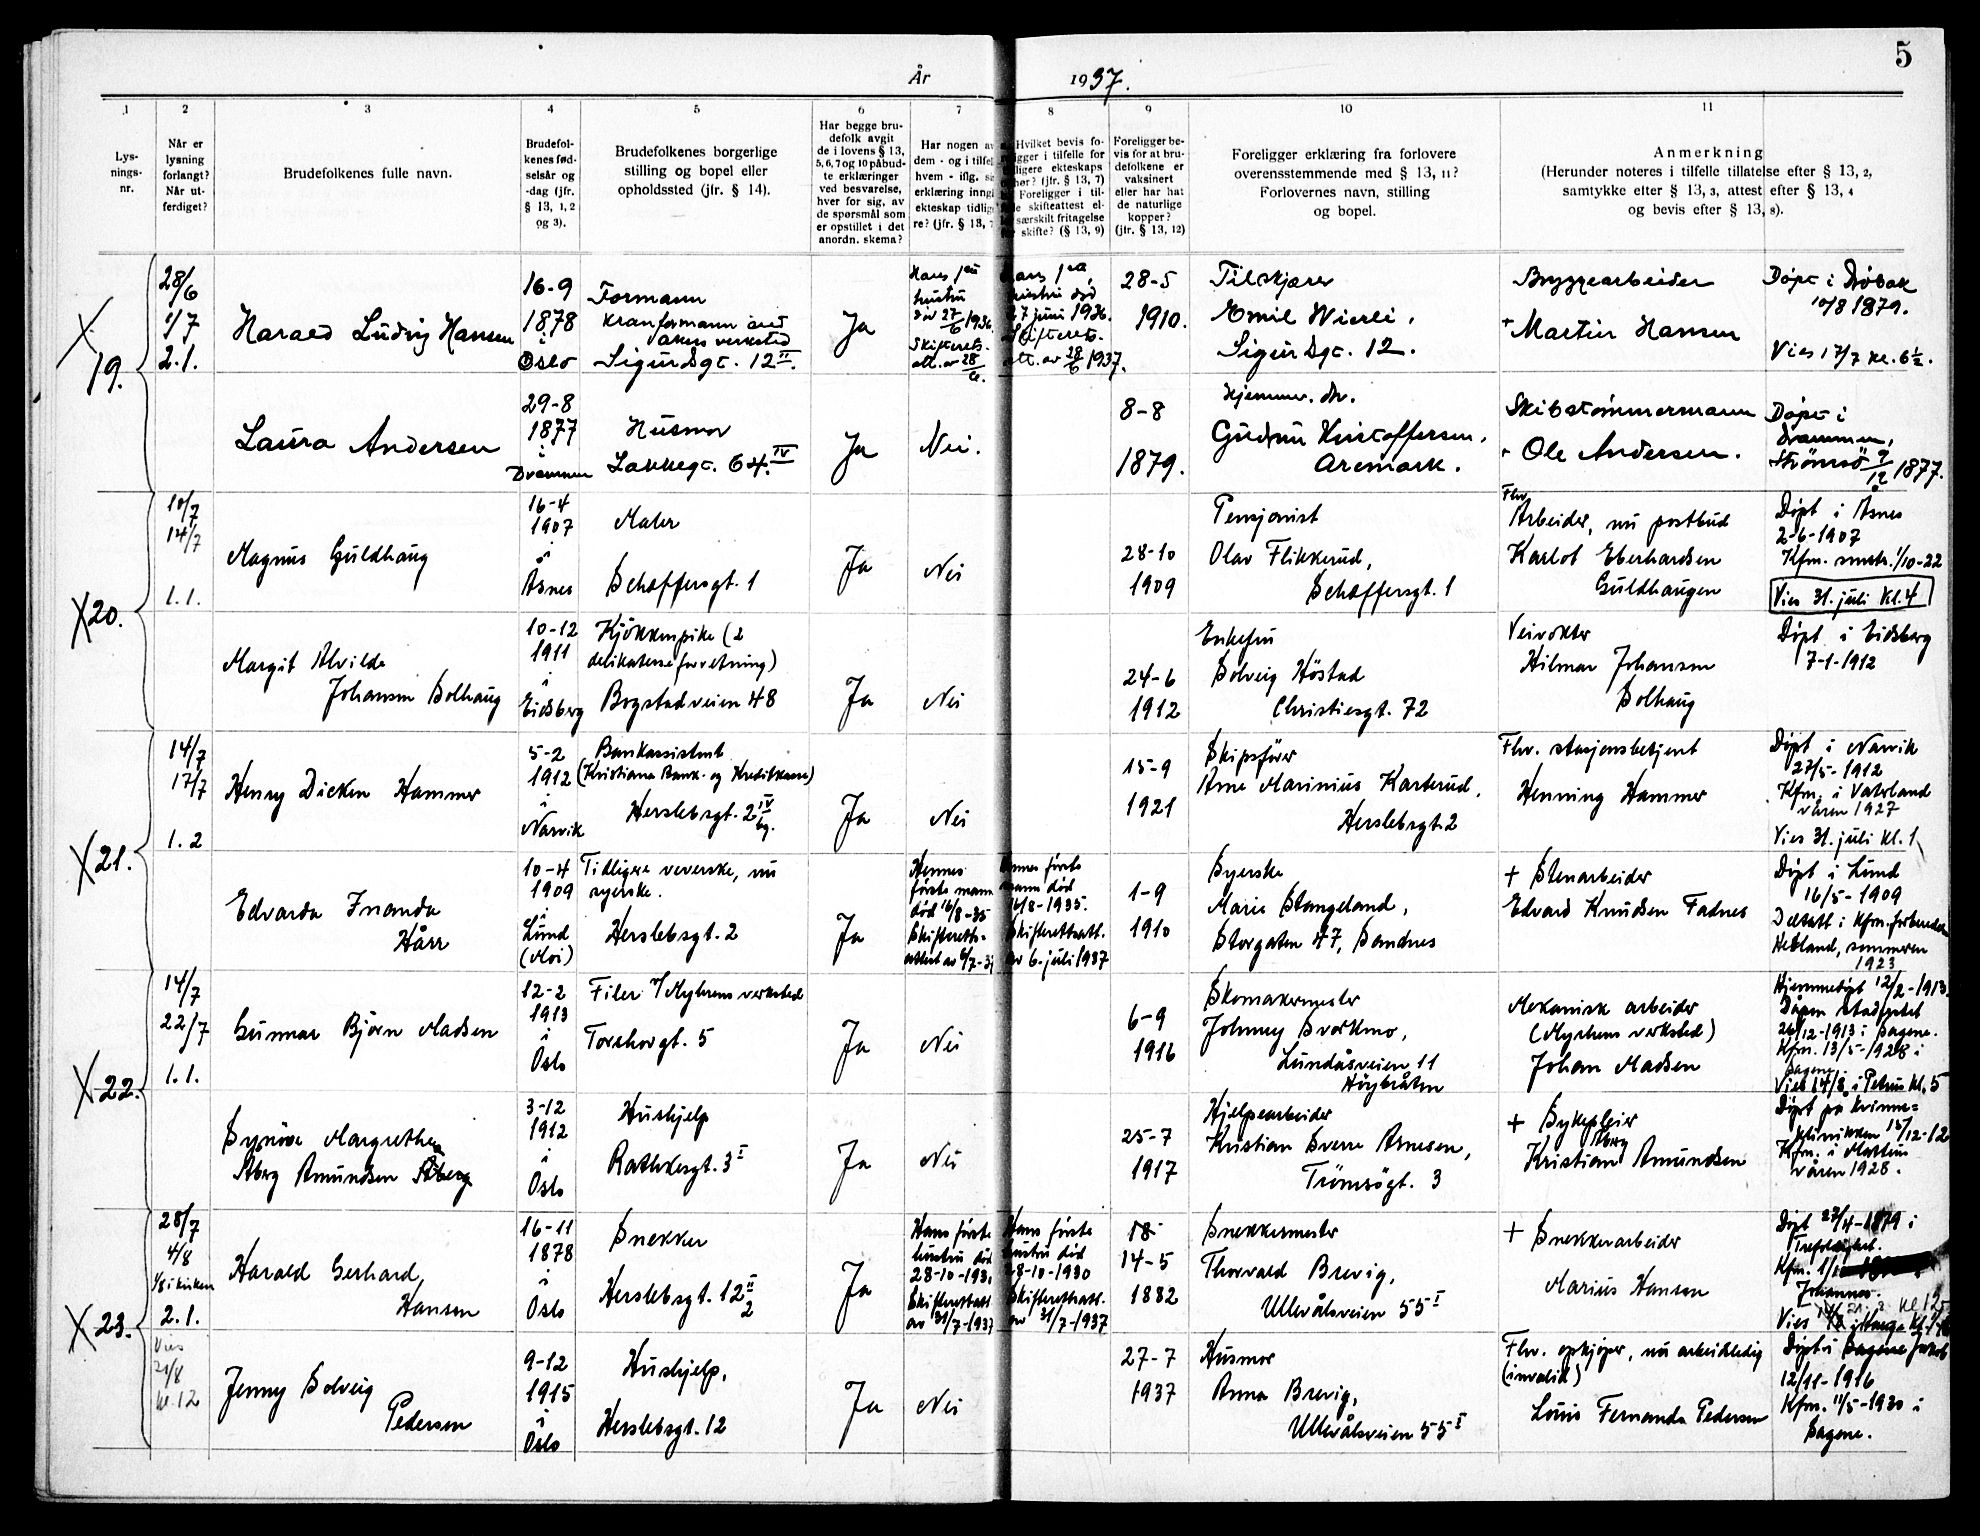 5
År 1937.
1
2
3
4
5
6
7
8
9
10
11
Lys-
nings-
nr.
Når er
lysning
forlangt?
Når ut-
ferdiget?
Brudefolkenes fulle navn.
Brudefol-
kenes fød-
selsår og
-dag (jfr.
§ 13, 1, 2
og 3).
Brudefolkenes borgerlige
stilling og bopel eller
opholdssted (jfr. § 14).
Har begge bru-
defolk avgit
de i lovens § 13,
5, 6, 7 og 10 påbud-
te erklæringer
ved besvarelse,
hver for sig, av
de spørsmål som
er opstillet i det
anordn. skema?
Har nogen av
dem - og i tilfel
hvem - iflg. si
erklæring inngå
ekteskap tidlig
re? (jfr. § 13, 7
Hvilket bevis fo-
ligger i tilfelle for
ligere ekteskaps
hør? (jfr. § 13, 7)
Foreligger i til-
le skifteattest el-
særskilt fritagelse
skifte? (§ 13, 9)
Foreligger be-
vis for at bru-
defolkene er
vaksinert
eller har hat
de naturlige
kopper?
(jfr. § 13, 12)
Foreligger erklæring fra forlovere
overensstemmende med § 13, 11?
Forlovernes navn, stilling
og bopel.
Anmerkning
(Herunder noteres i tilfelle tillatelse efter § 13, 2,
samtykke efter § 13, 3, attest efter § 13, 4
og bevis efter § 13, 8).
X 19.
28/6
1/7
2.1.
Harald Ludvig Hansen
16-9
1878
i
Oslo
Formann
Kranformann ved
Akers verksted
Sigurdsgt. 12 II.
Ja
Hans
hustru
død 27/6 1936.
Skifterets-
att. av 28/6.
hustru død
27 juni 1936.
Skifterets-
att. av 28/6 1937.
28-5
1910.
Tilskjærer
Emil Wierli,
Sigurdsgt. 12.
Bryggearbeider
+ Martin Hansen
Døpt i Drøbak
10/8 1879.
Vies 17/7 kl. 6½.
Laura Andersen
29-8
1877
i
Drammen
Husmor
Lakkegt. 64. IV
Ja
Nei.
8-8
1879.
Hjemmev. dr.
Gudrun Kristoffersen,
Aremark.
Skibstømmermann
+ Ole Andersen.
Døpt i
Drammen,
Strømsø 9/12 1877.
X 20.
10/7
14/7
1.1.
Magnus Guldhaug
16-4
1907
i
Åsnes
Maler
Schæffersgt. 1
Ja
Nei
28-10
1909
Pensjonist
Olav Flikkerud,
Schæffersgt. 1
Flv.
Arbeider, nu postbud
Karlot Eberhardsen
Guldhaugen
Døpt i Åsnes
2-6-1907
Kfm. smstr. 1/10-22
Vies 31. juli kl. 4
Margit Alvilde
Johansen Solhaug
10-12
1911
i
Eidsberg
Kjøkkenpike (i
delikatesseforretning)
Bogstadveien 48
Ja
Nei
24-6
1912
Enkefru
Solveig Høstad
Christiesgt. 72
Veivokter
Hilmar Johansen
Solhaug
Døpt i Eidsberg
7-1-1912
X 21.
14/7
17/7
1.2
Henry Dicken Hammer
5-2
1912
i
Narvik
Bankassistent
(Kristiania Bank- og Kreditkasse)
Herslebsgt. 2 IV bg.
Ja
Nei
15-9
1921
Skipsfører
Arne Marinius Karterud,
Herslebsgt. 2
Flv. stasjonsbetjent
Henning Hammer
Døpt i Narvik
27/5-1912
Kfm. i Vaterland
våren 1927
Vies 31. juli kl. 1
Edvarda Inanda
Hårr
10-4
1909
i
Lund
(Moi)
Tidligere veverske, nu
syerske.
Herslebsgt. 2
Ja
Hennes
første mann
død 16/8-35
Skifteretts-
attest av 6/7-37
Hennes første
mann død
16/8-1935.
Skifterettsatt.
av 6. juli 1937
1-9
1910
Syerske
Marie Stangeland,
Storgaten 47, Sandnes
+ Stenarbeider
Edvard Knudsen Fadnes
Døpt i Lund
16/5-1909
Deltatt i Kfm. forberedelse
Hebland, sommeren
1923
X 22.
14/7
22/7
1.1.
Gunnar Bjørn Madsen
12-2
1913
i
Oslo
Filer v/Myhrens verksted
Torshovgt. 5
Ja
Nei
6-9
1916
Skomakermester
Johnny Svorkmo,
Lundåsveien 11
Høybråten
Mekanisk arbeider
(Myrhens verksted)
Johan Madsen
Hjemmedøpt 12/2-1913.
Dåpen stadfestet
26/12-1913 i Sagene.
Kfm. 13/5-1928 i
Sagene.
Vies 14/8 i Petrus kl. 5
Synøve Margrethe
Åberg Amundsen Åberg
3-12
1912
i
Oslo
Hushjelp
Rathkesgt. 3 I
Ja
Nei
25-7
1917
Hjelpearbeider
Kristian Sverre Arnesen,
Tromsøgt. 3
+ Sykepleier
Åberg
Kristian Amundsen
Døpt på Kvinne-
klinikken 15/12-12
Kfm. i Markus
våren 1928.
X 23.
28/7
4/8
2.1.
Vies
21/8
kl. 12
Harald Gerhard
Hansen
16-11
1878
i
Oslo
Snekker
Herslebsgt. 12 II
2
Ja
Hans første
hustru død
28-10-1930
Skifterettsatt.
av 31/7-1937
Hans første
hustru død
28-10-1930
Skifterettsatt.
av 31/7-1937
18-
14-5
1882
Snekkermester
Thorvald Brevig,
Ullevålsveien 55 I
+ Snekkerarbeider
Marius Hansen
Døpt 27/4-1879 i
Trefoldighet.
Kfm.
Johannes.
Vies
Jenny Solveig
Pedersen
9-12
1915
i
Oslo
Hushjelp,
Herslebsgt. 12
Ja
Nei
27-7
1937
Husmor
Anna Brevig,
Ullevålsveien 55 I
Flv. opkjøper, nu arbeidledig
(invalid)
Louis Fernanda Pedersen
Døpt i Sagene Jakob
12/11-1916
Kfm. 11/5-1930 i
Sagene.